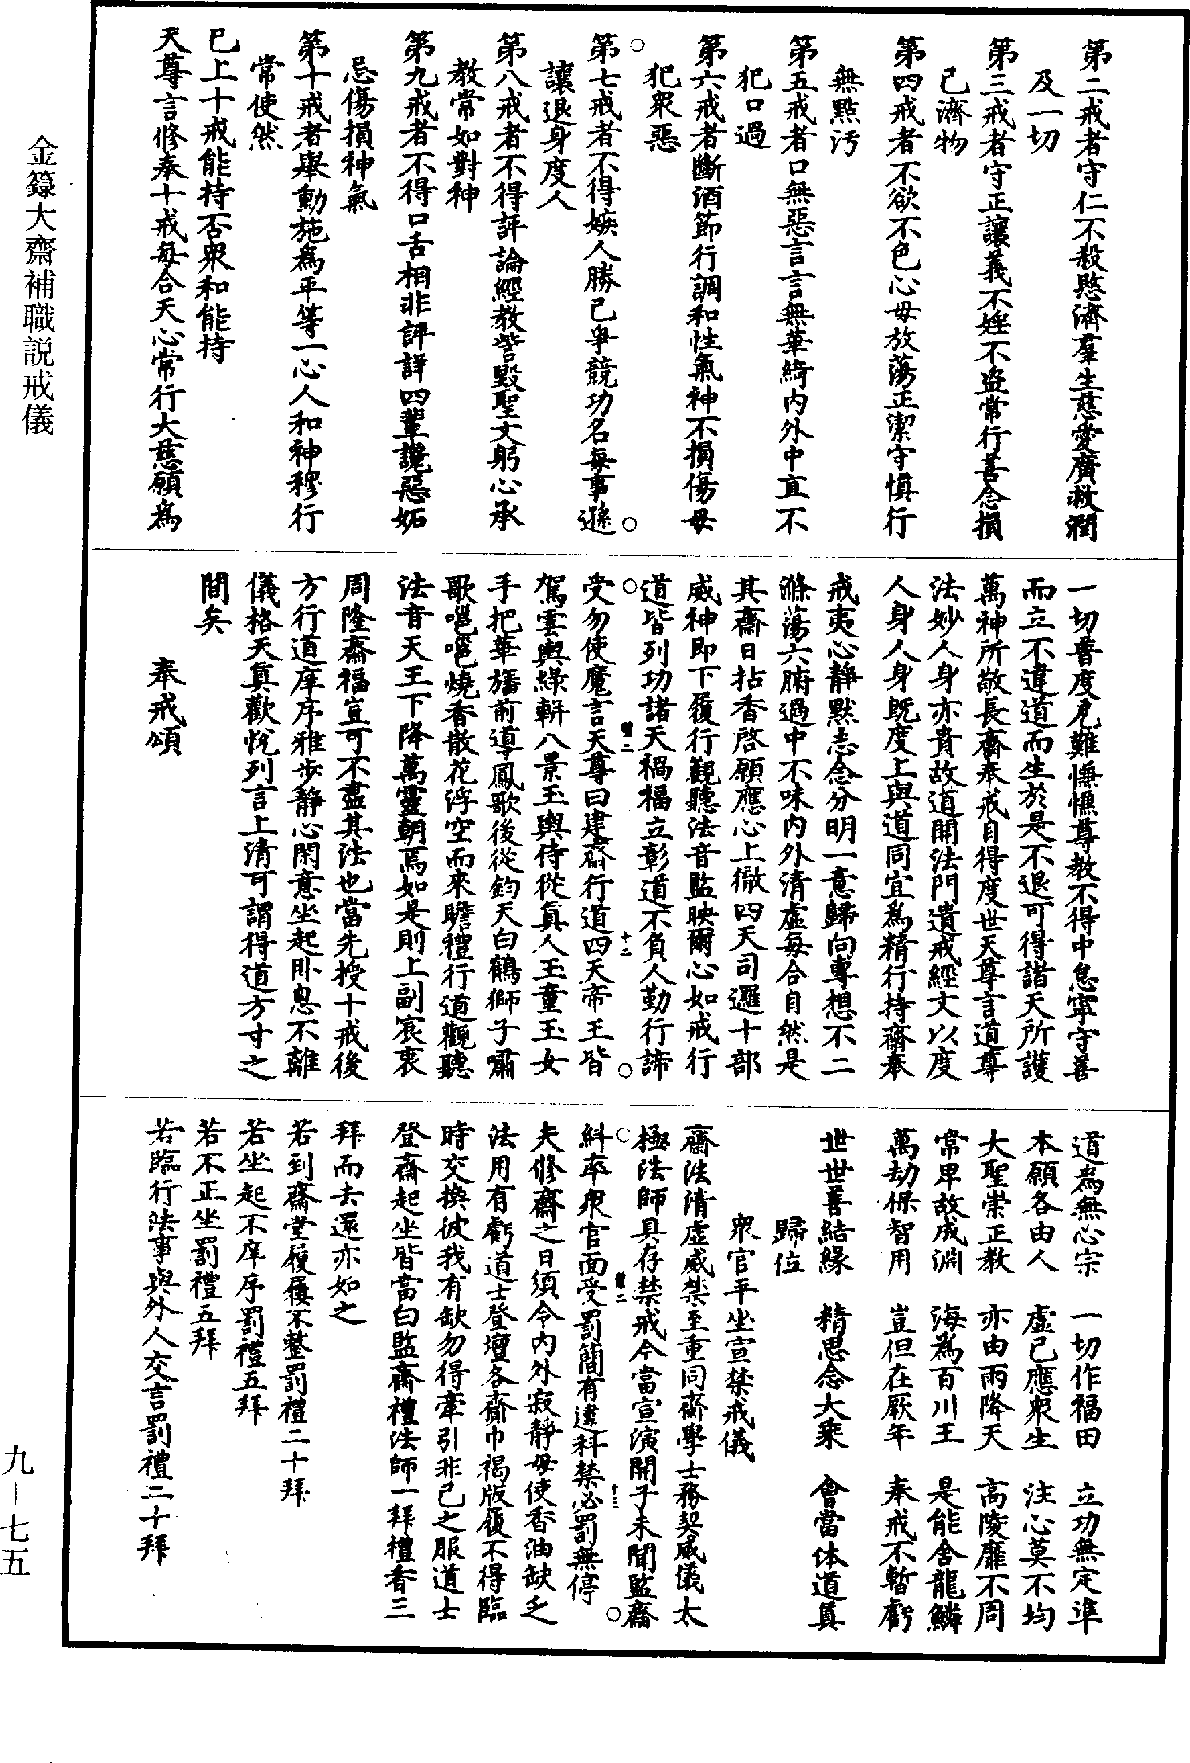 第二戒者守仁不殺愍濟羣生慈愛廣救潤
及一切
第三戒者守正讓義不婬不盗常行善念損
己濟物
第四戒者不欲不色心毋放蕩正潔守慎行
無點污
第五戒者口無惡言言無華綺内外中直不
犯口過
第六戒者斷酒節行調和性氣神不損傷毋
犯衆惡
第七戒者不得嫉人勝己爭競功名每事遜
讓退身度人
第八戒者不得評論經教訾毁聖文躬心承
教常如對神
第九戒者不得口舌相非評詳四輩譭惡妬
忌傷損神氣
第十戒者舉動施爲平等一心人和神穆行
常使然
已上十戒能持否衆和能持
天尊言修奉十戒每合天心常行大慈願爲
一切普度危難慊慊尊教不得中怠寧守善
而立不違道而生於是不退可得諧天所護
萬神所敬長齋奉戒自得度世天尊言道尊
法妙人身亦貴故道開法門遺戒經文以度
人身人身既度上與道同宜爲精行持齋奉
戒夷心靜默志念分明一意歸向專想不二
滌蕩六腑過中不味内外清虛每合自然是
其齋日拈香啓願應心上徹四天司邏十部
威神即下履行觀聽法音監映爾心如戒行
道皆列功諸天禍福立彰道不負人勤行諦
受勿使魔言天尊曰建齋行道四天帝王皆
駕雲輿緑軿八景玉輿侍從眞人玉童玉女
手把華旛前導鳳歌後從鈞天白鶴獅子嘯
歌嗈嗈燒香散花浮空而來瞻禮行道觀聽
法音天王下降萬靈朝焉如是則上副宸衷
周隆齋福豈可不盡其法也當先授十戒後
方行道庠序雅步靜心閑意坐起卧息不離
儀格天眞歡悦列言上清可謂得道方寸之
間矣
奉戒頌
道爲無心宗　一切作福田　立功無定準
本願各由人　虛己應衆生　注心莫不均
大聖崇正教　亦由雨降天　高陵靡不周
常卑故成淵　海爲百川王　是能舍龍鱗
萬劫保智用　豈但在厥年　奉戒不暫虧
世世善結緣　精思念大乘　會當体道眞
歸位
衆官平坐宣禁戒儀
齋法清虛威禁至重同齋學士務契威儀太
極法師具存禁戒今當宣演開予未聞監齋
糾率衆官面受罰簡有違科禁必罰無停
夫修齋之日須令内外寂靜毋使香油缺乏
法用有虧道士登壇各齋巾褐版履不得臨
時交換彼我有缺勿得牽引非己之服道士
登齋起坐皆當白監齋禮法師一拜禮香三
拜而去還亦如之
若到齋堂履屨不整罰禮二十拜
若坐起不庠序罰禮五拜
若不正坐罰禮五拜
若臨行法事與外人交言罰禮二十拜
金籙大齋補職説戒儀
九－七五